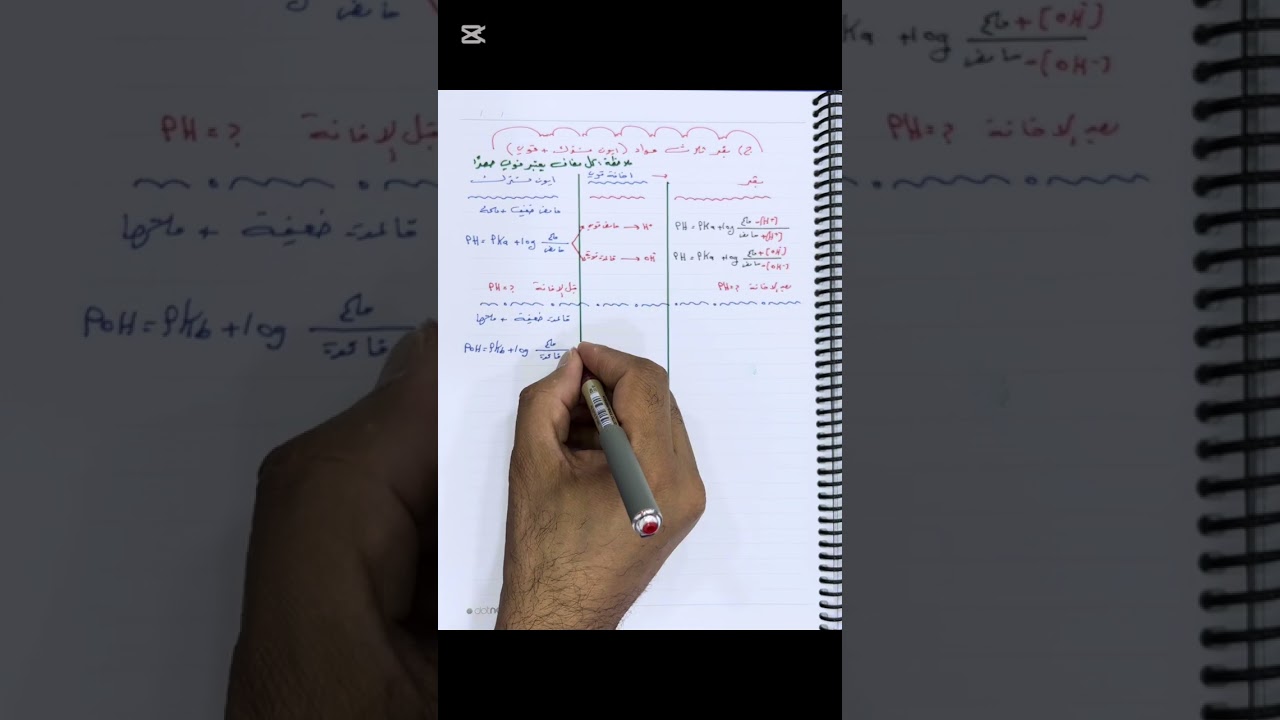 ج) بفر ثلاث مواد (ايون مشترك + قوي)
ملاحظة: كل مضاف يعتبر قوي جدًا
ايون مشترك
اضافة قوي →
بفر
حامض ضعيف + ملحه
PH = PKa + log ملح / حامض
حامض قوي → H+
قاعدة قوية → OH-
PH = PKa + log ملح - [H+] / حامض + [H+]
PH = PKa + log ملح + [OH-] / حامض - [OH-]
PH = ? قبل الاضافة
PH = ? بعد الاضافة
قاعدة ضعيفة + ملحها
POH = PKb + log ملح / قاعدة